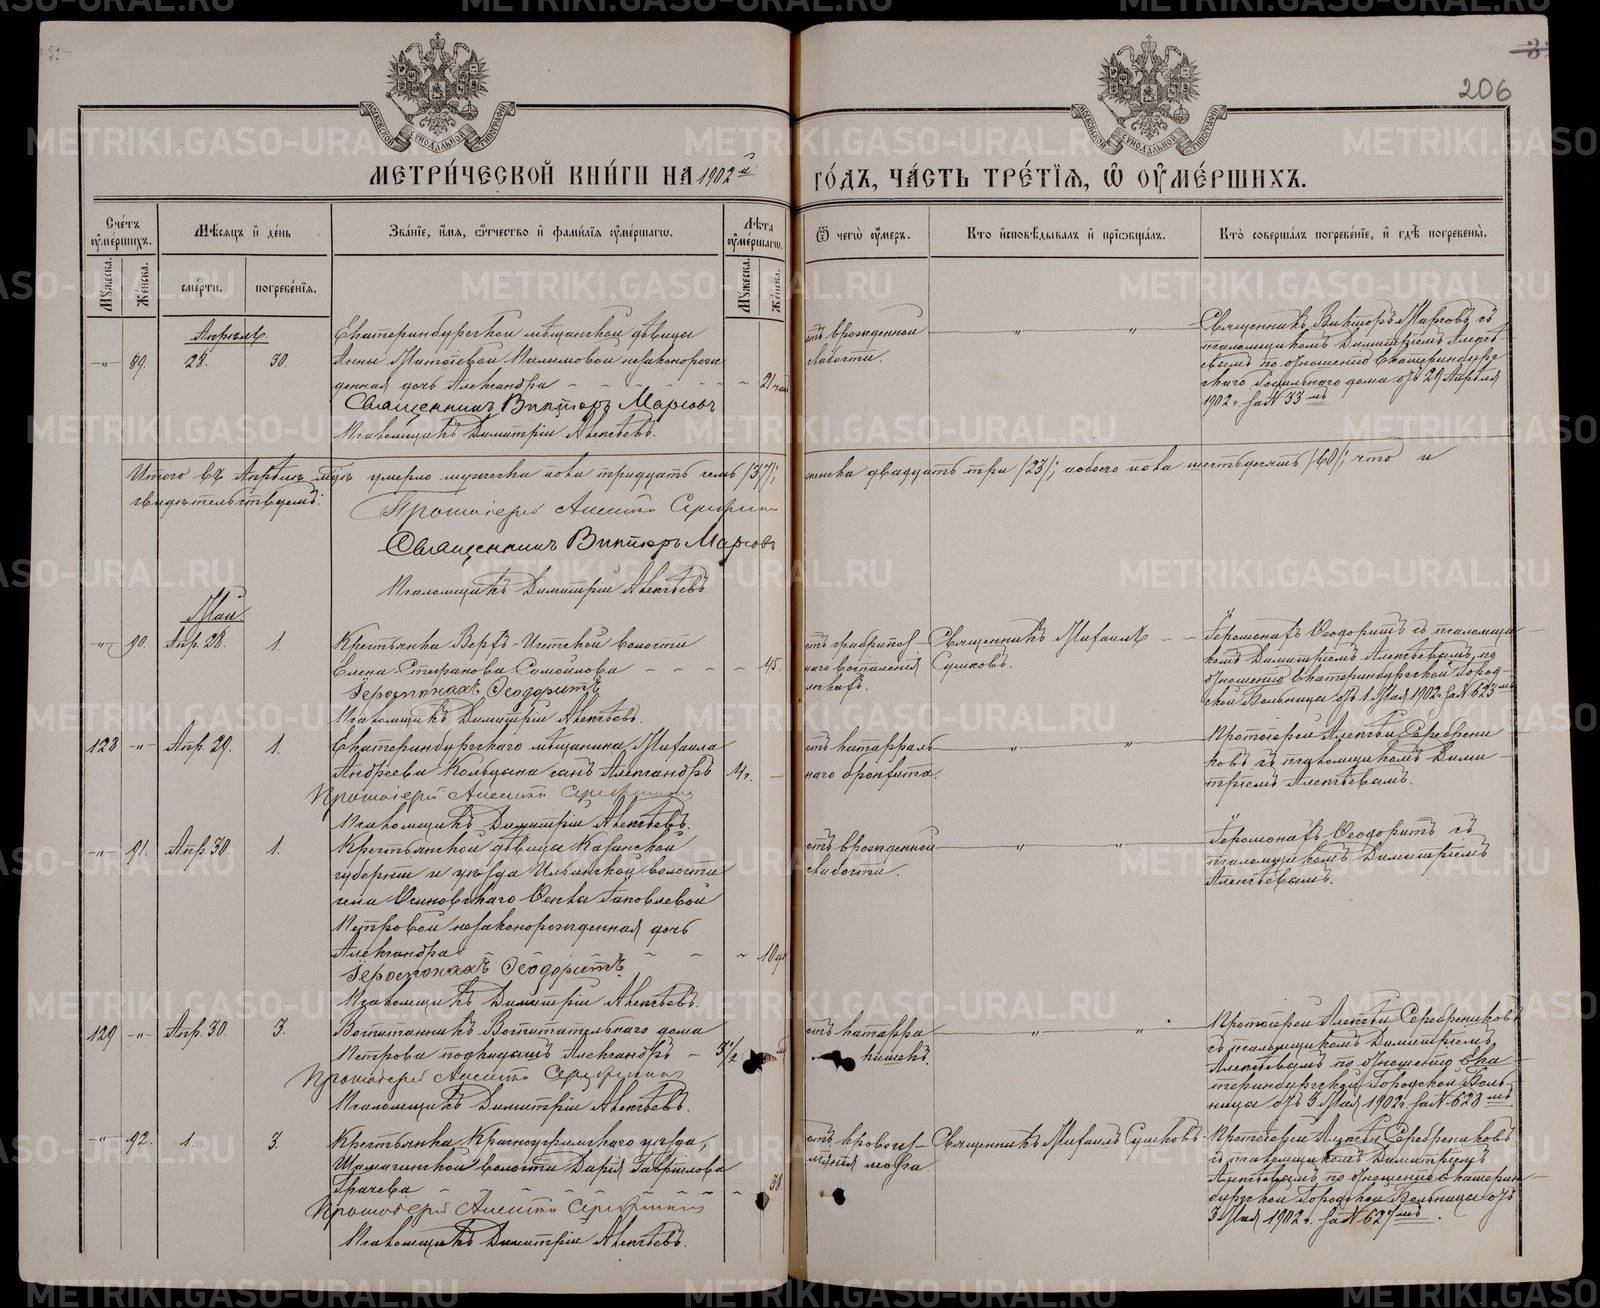 206
МОСКОВСКОЙ СѴНОДАЛЬНОЙ ТИПОГРАФІИ
МОСКОВСКОЙ СѴНОДАЛЬНОЙ ТИПОГРАФІИ
МЕТРИ́ЧЕСКОЙ КНИ́ГИ НА 1902й
ГО́ДЪ, ЧА́СТЬ ТРЕ́ТІѦ, Ѡ ОУМЕ́РШИХЪ.
Сче́тъ оуме́ршихъ.
Мѣсѧцъ и де́нь
Зва́ніе, и́мѧ, ѻтчество и фами́лїѧ оуме́ршагѡ.
Лѣта оуме́ршагѡ.
Ѿ чегѡ̀ оу́меръ.
Кто̀ исповѣ́дывалъ и прїѡбща́лъ.
Кто̀ соверша́лъ погребе́нїе, и гдѣ̀ погребены̀.
Му́жеска.
Же́нска.
сме́рти.
погребе́нїѧ.
Му́жеска.
Же́нска.
Апрѣль
-"- 89. 28. 30.
Екатеринбургской мѣщанской дѣвицы
Анны Незаконорож-
денная дочь Александра - - - - 21 час
Священникъ Викторъ Марсовъ
Псаломщикъ Димитрій Алексѣевъ.
отъ врожденной
слабости.
Священникъ Викторъ Марсовъ съ
псаломщикомъ Димитріемъ Алексѣ-
евымъ по отношенію Екатеринбург
скаго Родильнаго дома отъ 29 Апрѣля
1902 г. за № 33мъ
Итого въ Апрѣлѣ м-цѣ умерло мужеска пола тридцать семь /37/;
женска двадцать три /23/; обоего пола шестьдесятъ /60/; что и
свидѣтельствуемъ:
Протоіерей Алексій Серебрени
Священникъ Викторъ Марсовъ
Псаломщикъ Димитрій Алексѣевъ.
Май.
-"- 90. Апр. 28. 1.
Крестьянка Верхъ-Исетской волости
Елена Стефанова Самойлова - - - - 45.
Іеромонахъ Ѳеодоритъ
Псаломщикъ Димитрій Алексѣевъ.
отъ
наго воспаленія
легкихъ.
Священникъ Михаилъ
Сушковъ.
Іеромонахъ Ѳеодоритъ съ псаломщи-
комъ Димитріемъ Алексѣевымъ, по
отношенію Екатеринбургской Город-
ской Больницы отъ 1 Мая 1902 г. за № 623мъ
128 -"- Апр. 29. 1.
Екатеринбургскаго мѣщанина Михаила
Андреева Кольцына сынъ Александръ 4 г. -
Протоіерей Алексій Серебрениковъ
Псаломщикъ Димитрій Алексѣевъ.
отъ катарраль
наго бронхита.
Протоіерей Алексій Серебрени
ковъ съ псаломщикомъ Дими
тріемъ Алексѣевымъ.
-"- 91. Апр. 30 1.
Крестьянской дѣвицы Казанской
губерніи и уѣзда Ильинской волости
села Осиновскаго Ѳеклы Яковлевой
Петровой незаконорожденная дочь
Александра - - - - 10 дн
Іеромонахъ Ѳеодоритъ.
Псаломщикъ Димитрій Алексѣевъ.
отъ врожденной
слабости.
Іеромонахъ Ѳеодоритъ съ
псаломщикомъ Димитріемъ
Алексѣевымъ.
129 -"- Апр. 30. 3.
Воспитанникъ Воспитательнаго дома
Петрова подкидышъ Александръ - 3 1/2
Протоіерей Алексій Серебрениковъ
Псаломщикъ Димитрій Алексѣевъ.
отъ катарра
кишекъ.
Протоіерей Алексій Серебрениковъ
съ псаломщикомъ Димитріемъ
Алексѣевымъ по отношенію Ека
теринбургской Городской Боль
ницы отъ 3 Мая 1902 г. за № 628мъ
-"- 92. 1. 3.
Крестьянка Красноуфимскаго уѣзда,
волости Дарія Гаврилова
Грачева - - - - 38.
Протоіерей Алексій Серебрениковъ
Псаломщикъ Димитрій Алексѣевъ.
отъ
мозга.
Священникъ Михаилъ Сушковъ.
Протоіерей Алексій Серебрениковъ
съ псаломщикомъ Димитріемъ
Алексѣевымъ по отношенію Екатерин
бургской Городской Больницы отъ
3 Мая 1902 г. за № 627мъ.
METRIKI.GASO-URAL.RU